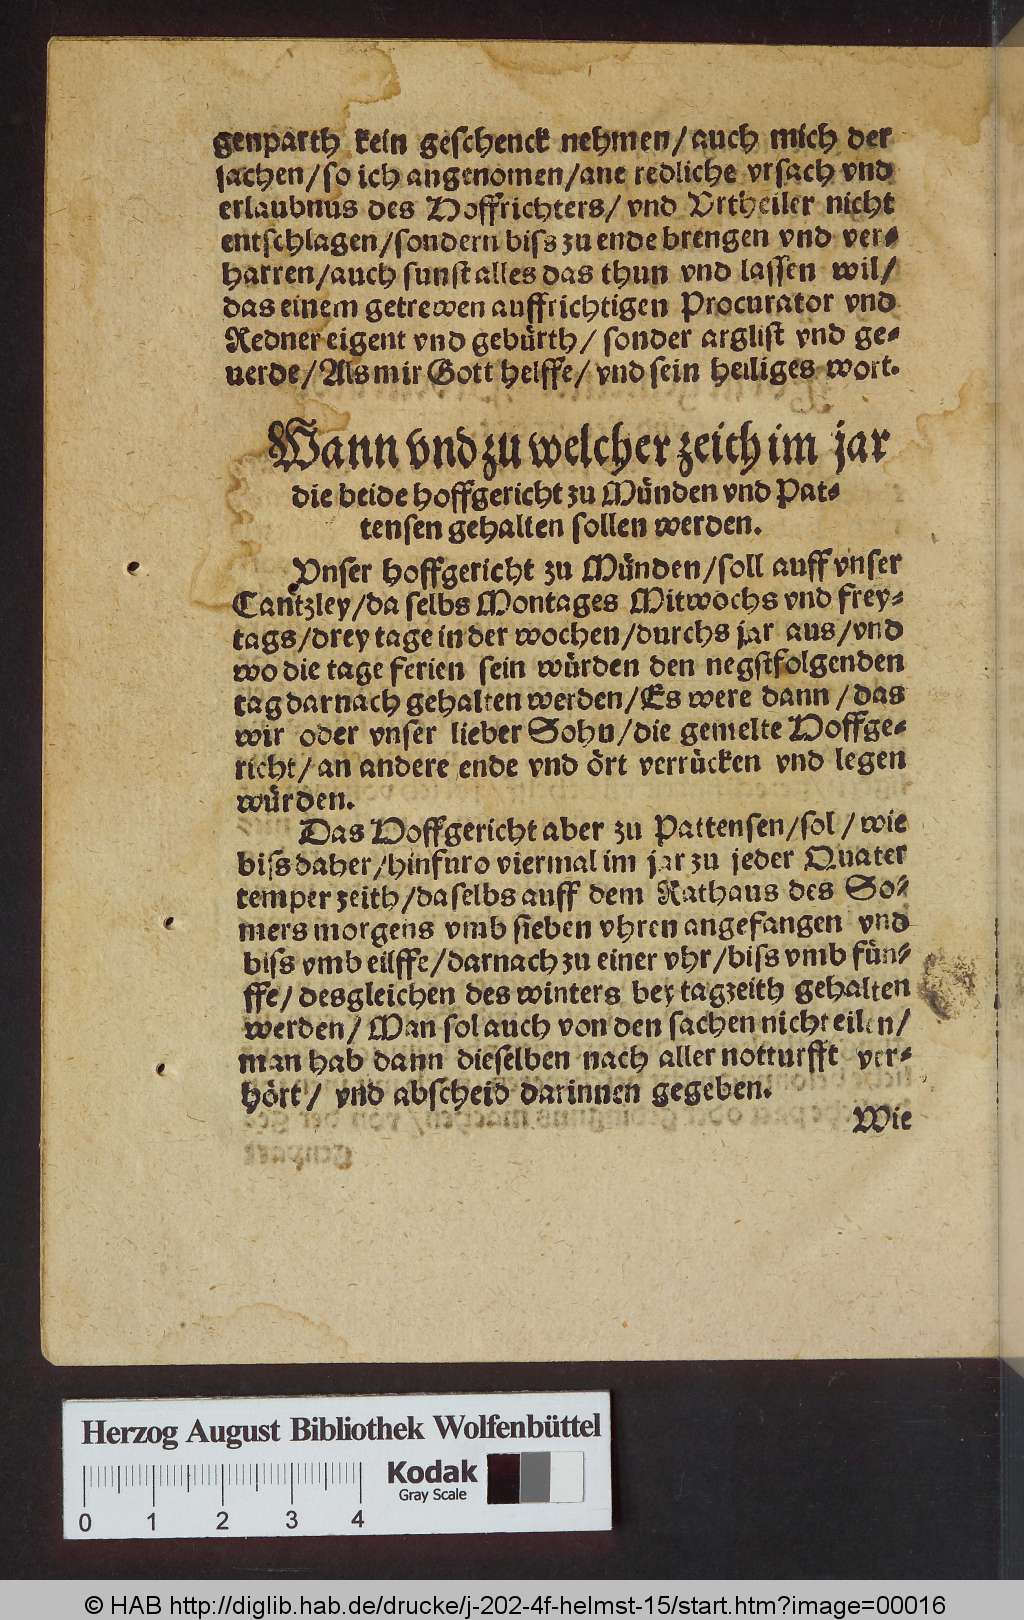 genparth kein geschenck nehmen/auch mich der
sachen/so ich angenomen/ane redliche vrsach vnd
erlaubnus des Hoffrichters/ vnd Vrtheiler nicht
entschlagen/sondern biss zu ende brengen vnd ver-
harren/auch sunst alles das thun vnd lassen wil/
das einem getrewen auffrichtigen Procurator vnd
Redner eigent vnd gebürth/ sonder arglist vnd ge-
uerde/Als mir Gott helffe/ vnd sein heiliges wort.
Wann vnd zu welcher zeith im jar
die beide hoffgericht zu Münden vnd Pat-
tensen gehalten sollen werden.
Vnser hoffgericht zu Münden/soll auff vnser
Cantzley/da selbs Montages Mitwochs vnd frey-
tags/drey tage in der wochen/durchs jar aus/vnd
wo die tage ferien sein würden den negstfolgenden
tag darnach gehalten werden/Es were dann/das
wir oder vnser lieber Sohn/die gemelte Hoffge-
richt/an andere ende vnd ört verrücken vnd legen
würden.
Das Hoffgericht aber zu Pattensen/sol/wie
biss daher/hinfuro viermal im jar zu jeder Quater
temper zeith/daselbs auff dem Rathaus des So-
mers morgens vmb sieben vhren angefangen vnd
biss vmb eilffe/darnach zu einer vhr/biss vmb fün-
ffe/desgleichen des winters bey tagzeith gehalten
werden/Man sol auch von den sachen nicht eilen/
man hab dann dieselben nach aller notturfft ver-
hört/ vnd abscheid darinnen gegeben.
Wie
Herzog August Bibliothek Wolfenbüttel
Kodak
Gray Scale
0 1 2 3 4
© HAB http://diglib.hab.de/drucke/j-202-4f-helmst-15/start.htm?image=00016